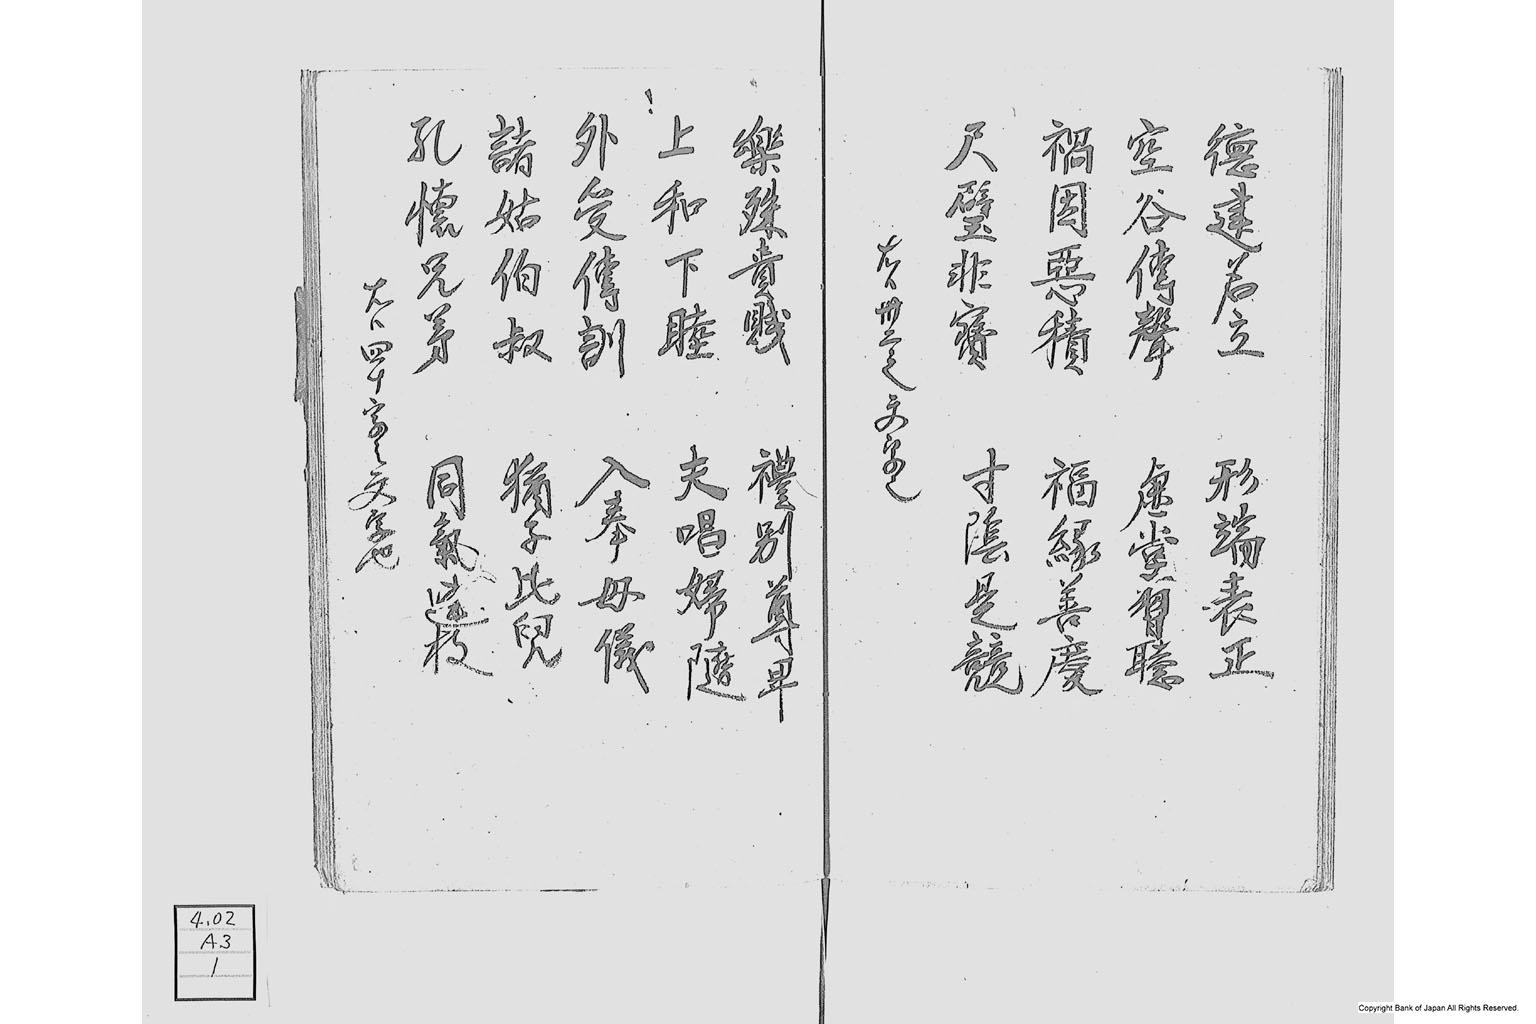 徳建名立　形端表正
空谷傳聲　虚堂習聽
禍因惡積　福緣善慶
尺璧非寶　寸陰是競
右ハ卅二之文字也
樂殊貴賤　禮別尊卑
上和下睦　夫唱婦隨
外受傅訓　入奉母儀
諸姑伯叔　猶子比兒
孔懷兄弟　同氣連枝
右ハ四十字之文字也
4.02
A3
1
Copyright Bank of Japan All Rights Reserved.